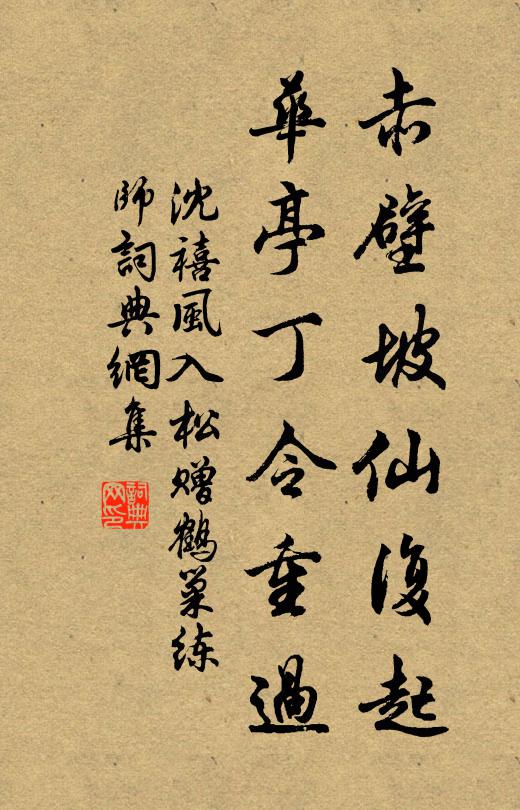 赤壁坡仙復起
華亭丁令重過
沈禧風入松贈鶴巢练
師詞典網集
詞典网印